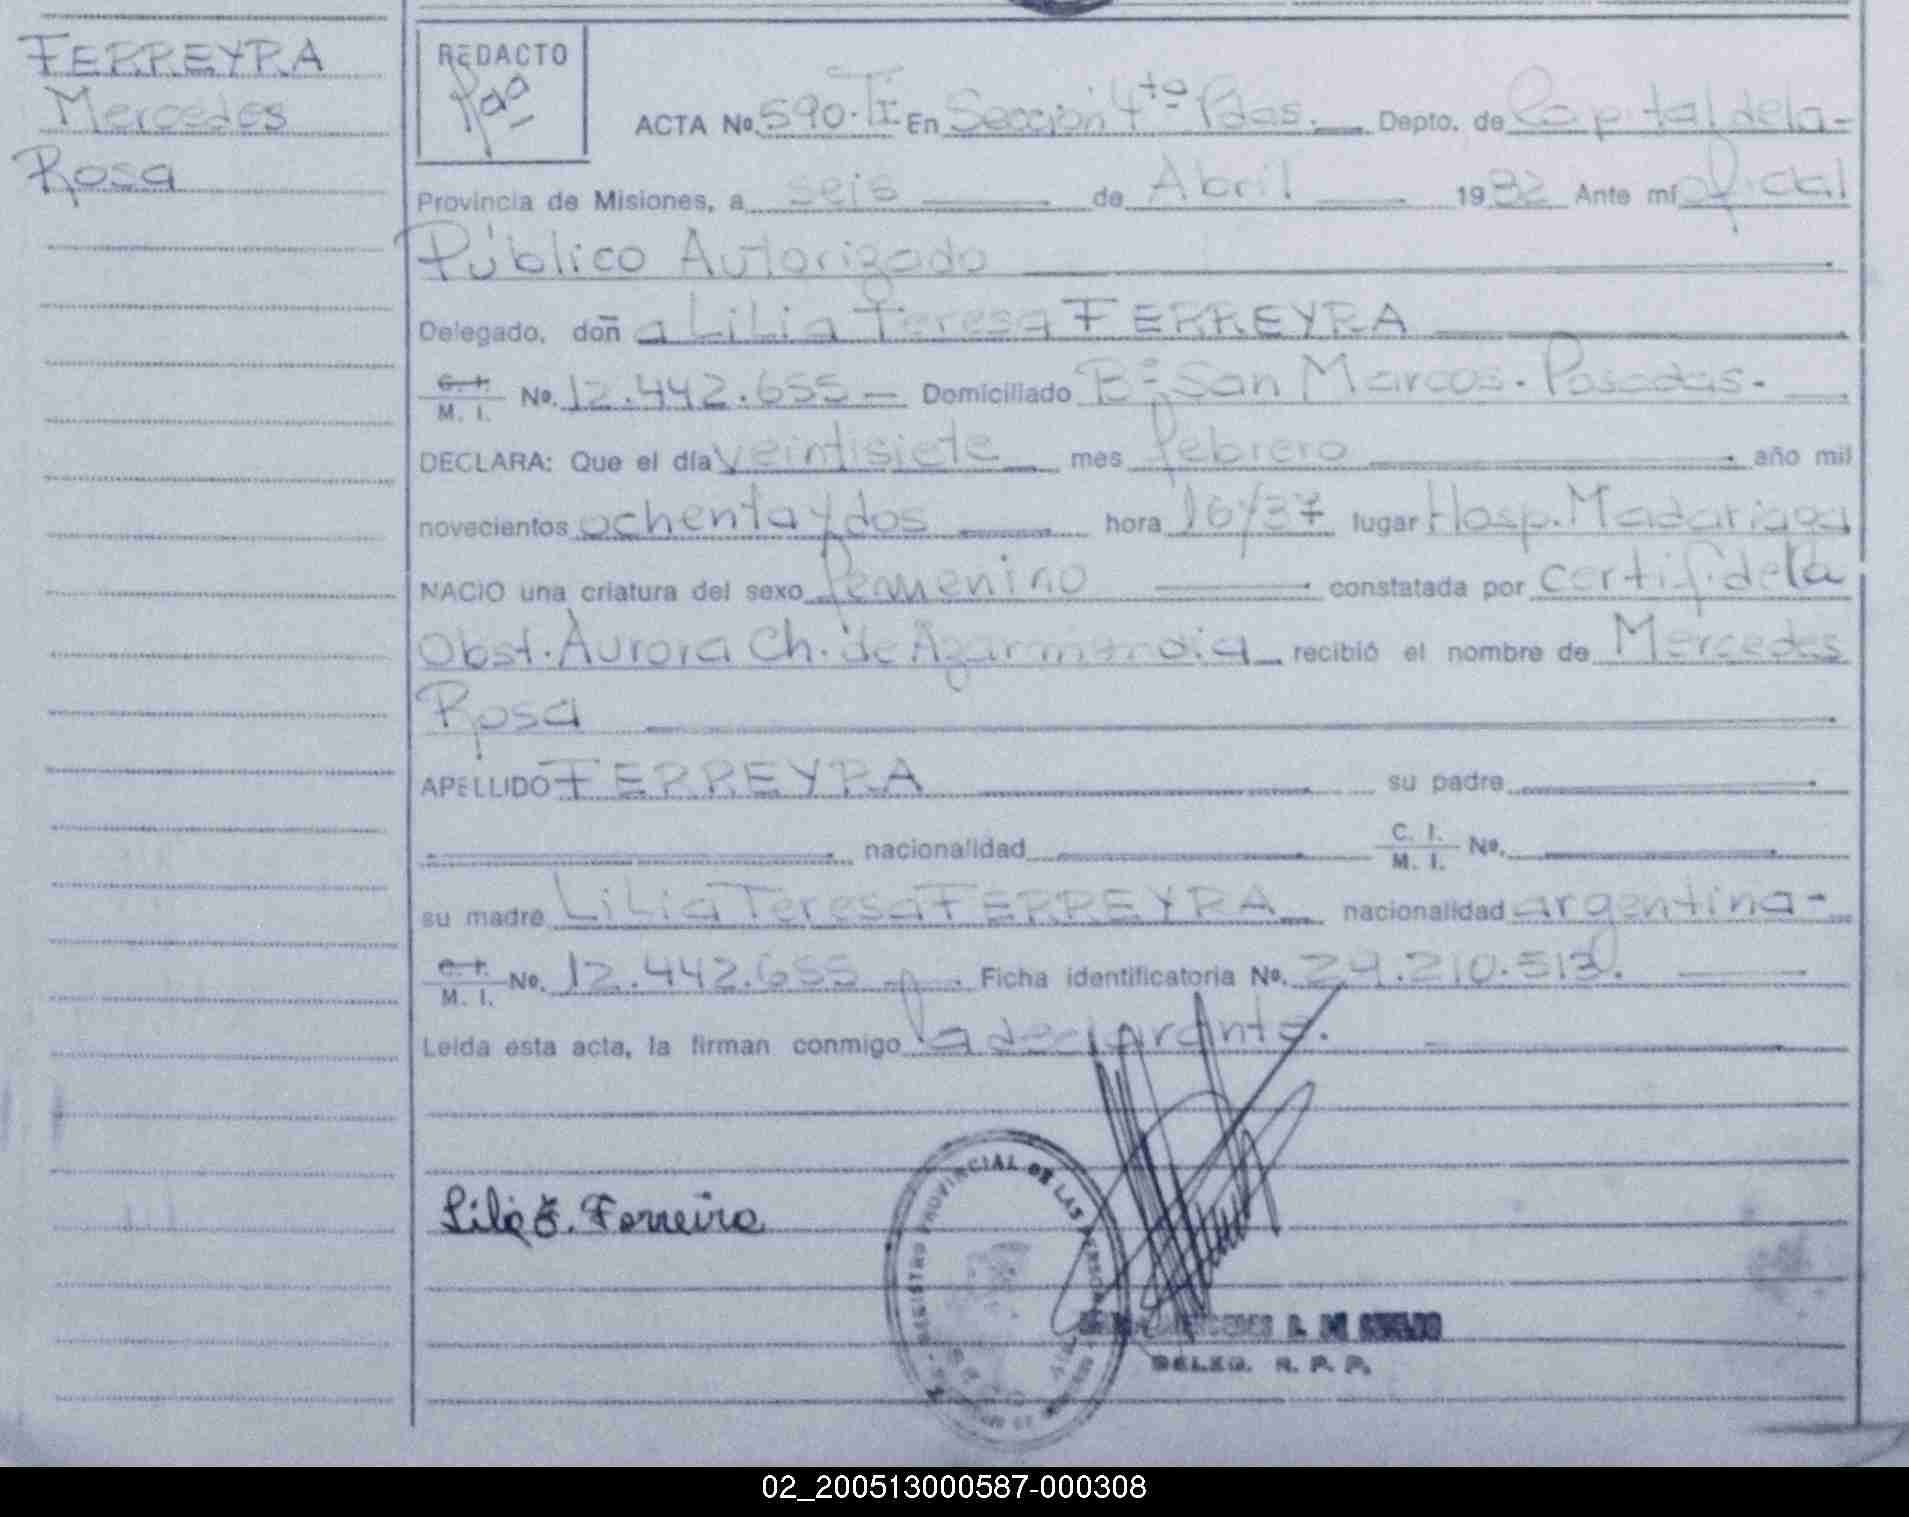 FERREYRA
Mercedes
Rosa
REDACTO
ACTA No. 590-TI En Sección 4ta Pdas. Depto. de Capital de la-
Provincia de Misiones, a seis de Abril 1982 Ante mí oficial
Público Autorizado
Delegado, doña Lilia Teresa FERREYRA
C. I. / M. I. No. 12.442.655 Domiciliado Bº San Marcos. Posadas.
DECLARA: Que el día veintisiete mes febrero año mil
novecientos ochenta y dos hora 16/37 lugar Hosp. Madariaga
NACIO una criatura del sexo femenino constatada por certif. de la
Obst. Aurora Ch. de Azarmendia recibió el nombre de Mercedes
Rosa
APELLIDO FERREYRA su padre
nacionalidad C. I. / M. I. No.
su madre Lilia Teresa FERREYRA nacionalidad argentina-
C. I. / M. I. No. 12.442.655 Ficha identificatoria No. 29.210.513.
Leída esta acta, la firman conmigo la declarante.
REGISTRO PROVINCIAL DE LAS PERSONAS
DELEG. R. P. P.
02_200513000587-000308